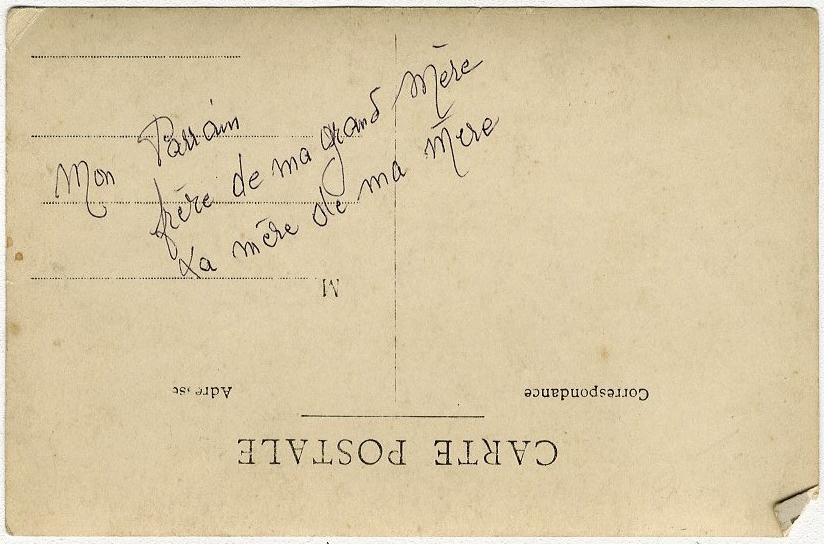 Mon Parrain
frère de ma grand Mère
La mère de ma Mère
M
Adresse
Correspondance
CARTE POSTALE